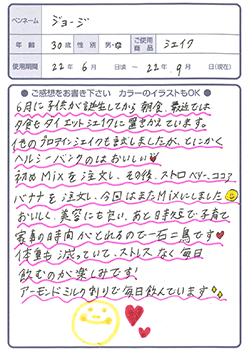 ペンネーム ジョージ
年齢 30歳 性別 男・女 ご使用商品 シェイク
使用期間 22年 6月 日頃 ~ 22年 9月 日(現在)
● ご感想をお書き下さい カラーのイラストもOK ●
6月に子供が誕生してから朝食、最近では
夕食もダイエットシェイクに置きかえています。
他のプロテインシェイクも重複しましたが、とにかく
ヘルシーバンクのはおいしい♥
初めMixを注文し、その後、ストロベリー、ココア
バナナを注文し、今回はまたMixにしました
おいしい、美容にも良い、あと日時短で子育て
家事の時間がとれるので一石二鳥です♥
体重も減っていて、ストレスなく毎日
飲むのが楽しみです!
アーモンドミルク割りで毎日飲んでいます